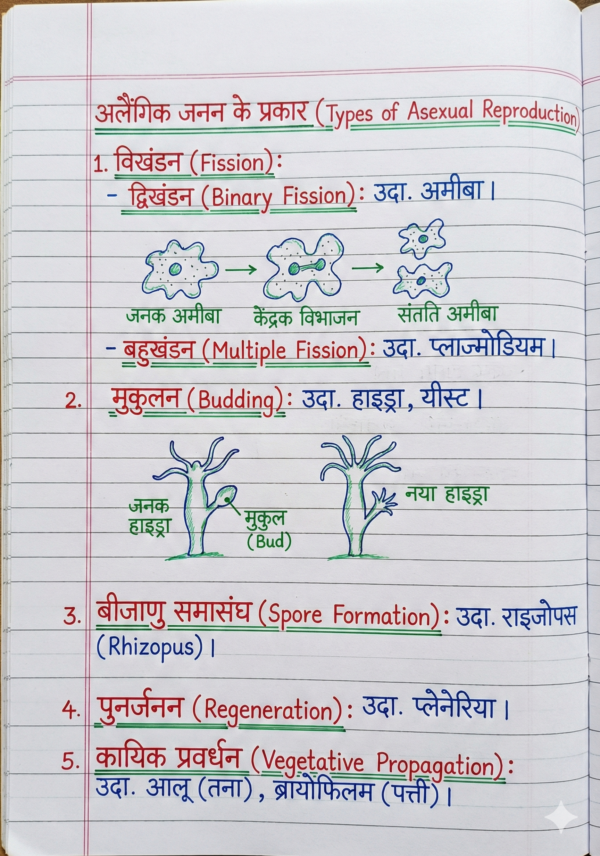 अलैंगिक जनन के प्रकार (Types of Asexual Reproduction)
1. विखंडन (Fission):
- द्विखंडन (Binary Fission): उदा. अमीबा।
जनक अमीबा केंद्रक विभाजन संतति अमीबा
- बहुखंडन (Multiple Fission): उदा. प्लाज्मोडियम।
2. मुकुलन (Budding): उदा. हाइड्रा, यीस्ट।
जनक
हाइड्रा
मुकुल
(Bud)
नया हाइड्रा
3. बीजाणु समासंघ (Spore Formation): उदा. राइजोपस
(Rhizopus)।
4. पुनर्जनन (Regeneration): उदा. प्लेनेरिया।
5. कायिक प्रवर्धन (Vegetative Propagation):
उदा. आलू (तना), ब्रायोफिलम (पत्ती)।